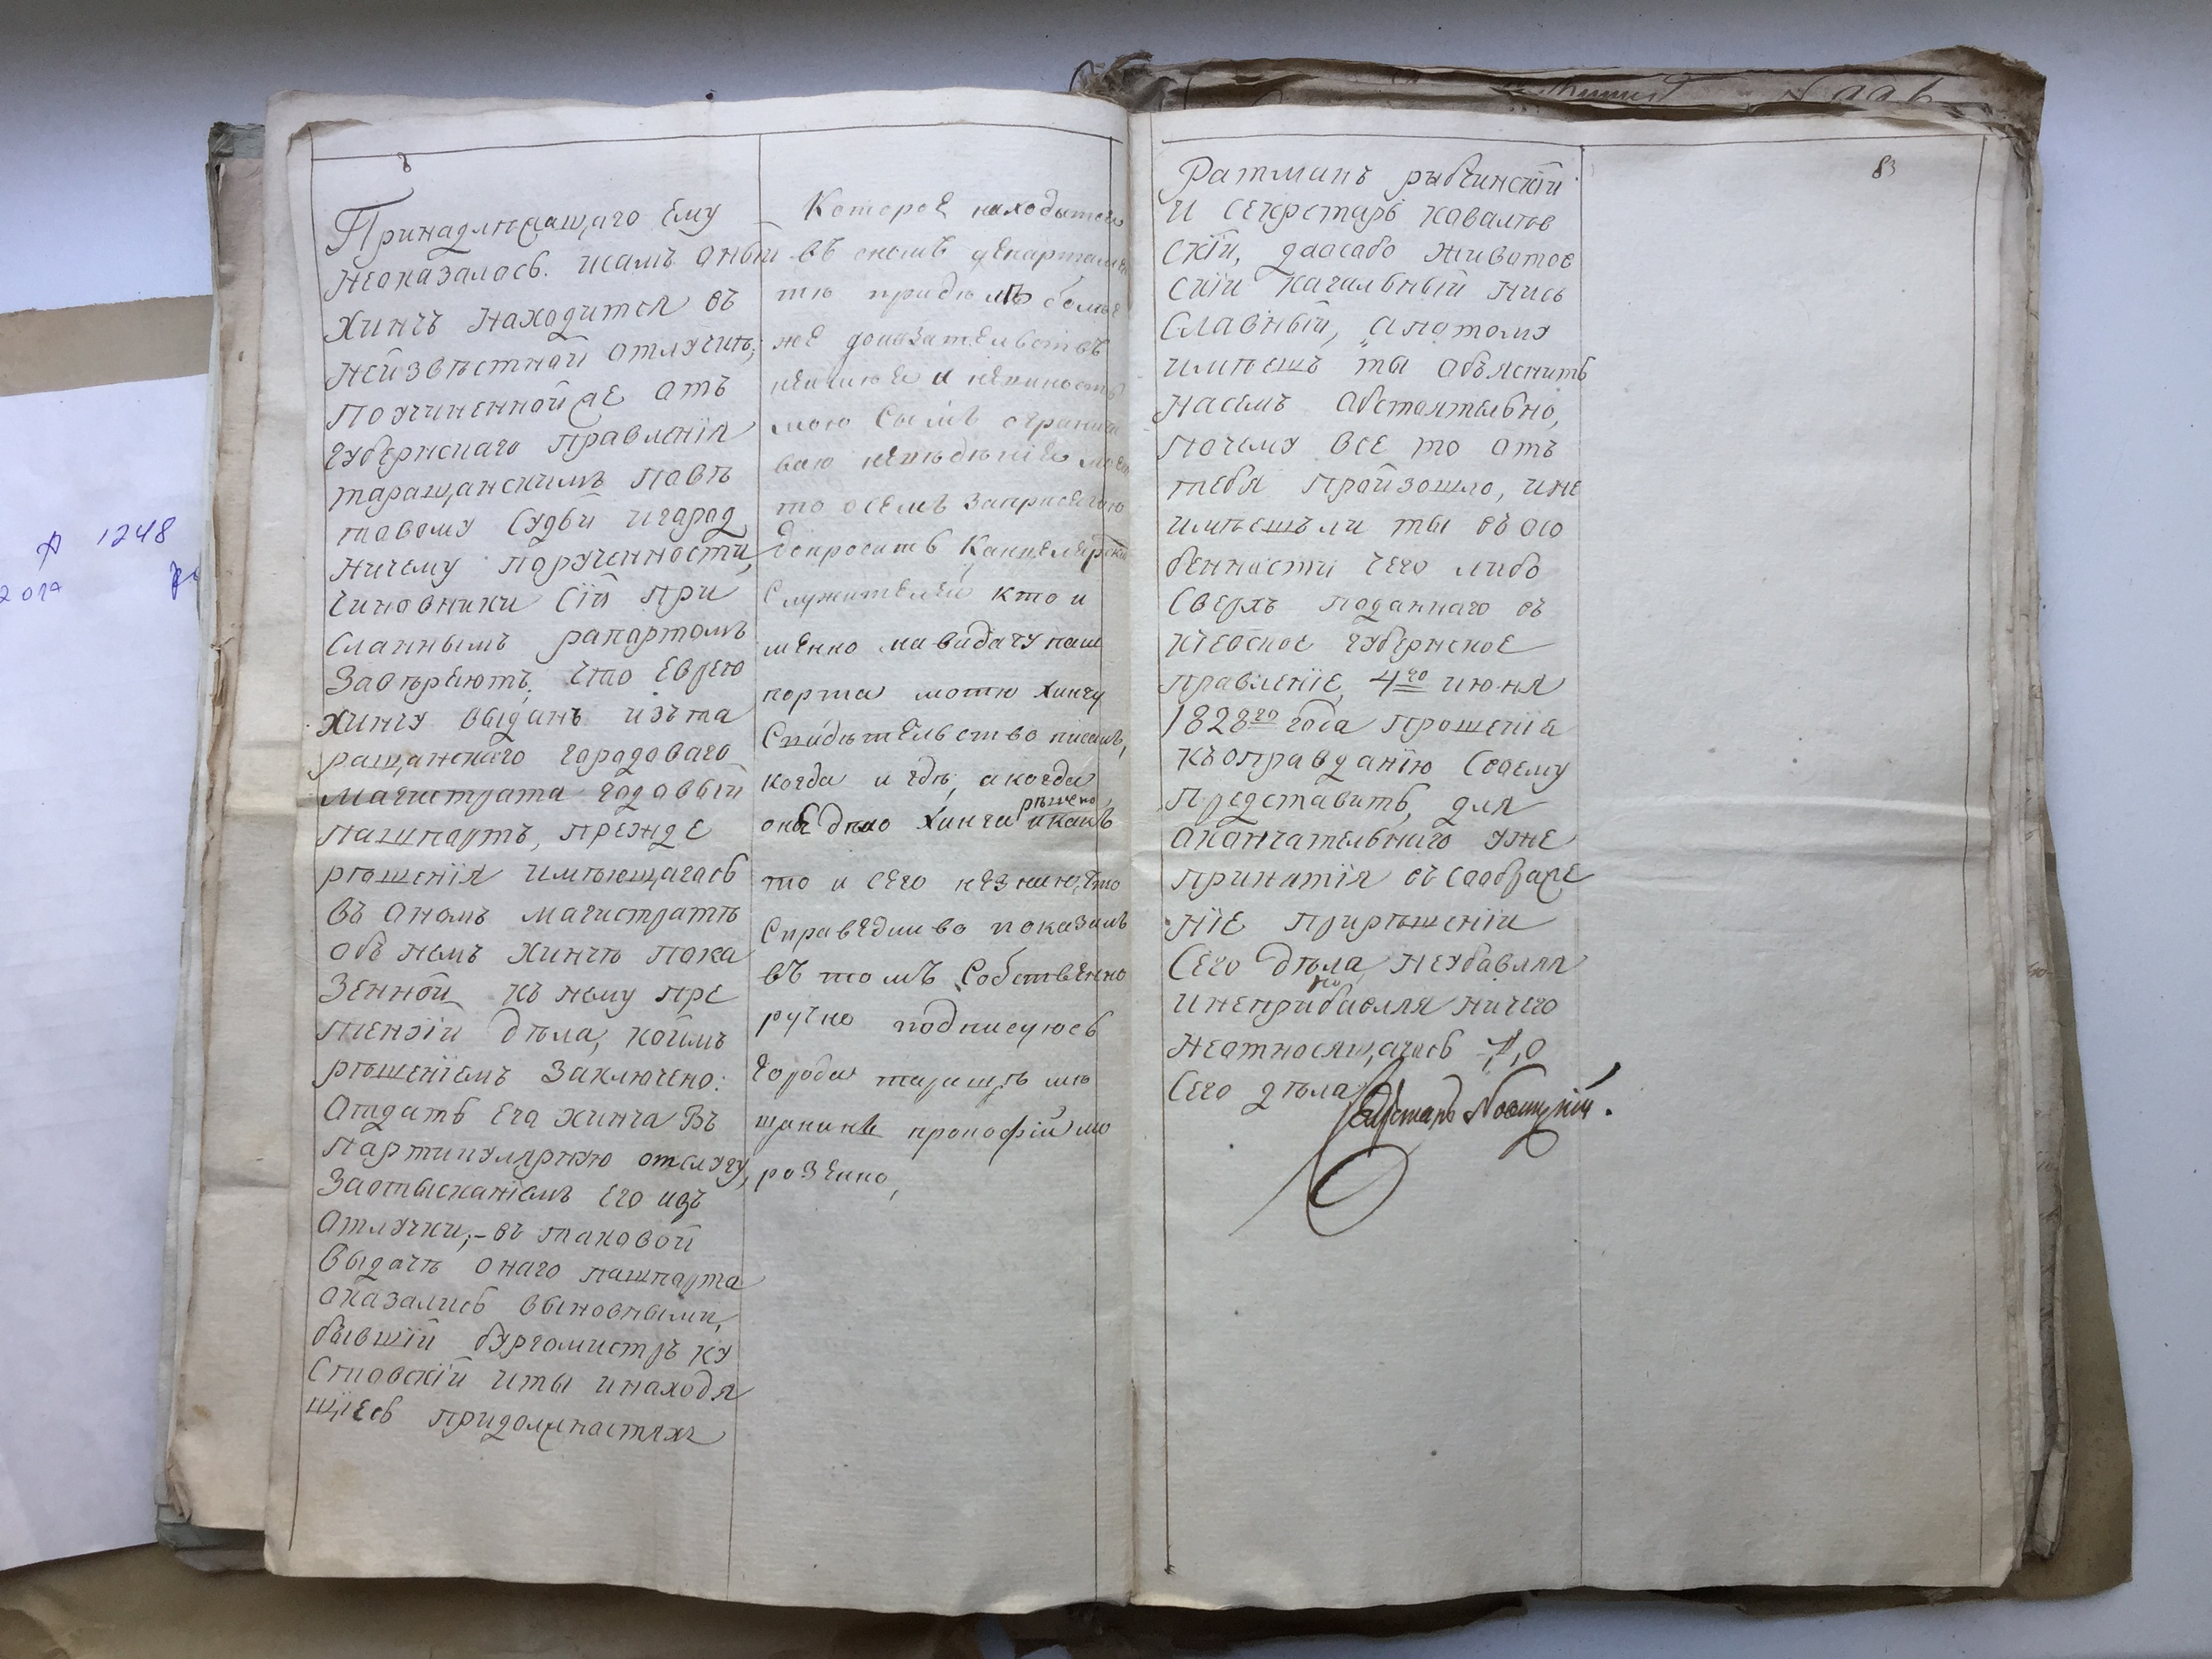 Принадлежащаго ему
неоказалось. исамъ оный
Хинчъ находится въ
неизвѣстной отлучкѣ;
Поучиненной же отъ
Губернскаго Правленія
таращанскимъ повѣ
товому Судьи игород
ничему порученности,
Чиновники сіи при
сланнымъ рапортомъ
Завѣряютъ, что еврею
Хинчу выданъ изъ та
ращанскаго городоваго
Магистрата годовый
пашпортъ, прежде
рѣшенія имѣющагось
въ ономъ магистратѣ
объ немъ Хинчѣ пока
зенной къ нему пре
тензіи дѣла, коимъ
рѣшеніемъ заключено:
Отдать его хинча въ
партикулярную отслугу,
Заотысканіемъ его изъ
отлучки;- въ таковой
выдачѣ онаго пашпорта
оказались выновными,
бывшій бургомистръ ку
стовскій иты инаходя
щіесь придолжностяхъ
Которое находится
въ ономъ департаме
тѣ придѣлѣ болье
же доказательствъ
неимѣю и невиность
мою Сымъ ограничи
ваю
то осемъ заприсягою
допросить Канцелярски
Служителей кто и
менно на видачу паш
порта мотю хинчу
Свидѣтельство писалъ,
когда и гдѣ, а когда
рѣшено,
оно дѣло Хинчи икакъ
то и сего незнаю, что
Справедливо показалъ
въ томъ Собственно
ручно подписуюсь
Города таращѣ мѣ
щанинъ прокофій мо
розенко,
83
Ратманъ рыбчинскій
И Секретарь ковалѣв
скій, даособо живатов
скій качальный пись
славный, апотому
имѣешъ ты объяснить
насемъ обстоятельно,
почему все то отъ
тебя произошло, ине
имѣешъли ты въ осо
бенности чего либо
сверхъ поданнаго въ
кіевское губернское
правленіе, 4го июня
1828го года прошенія
къоправданію своему
Представить, для
окончательнаго уже
принятія въ соображе
ніе прирѣшеніи
Сего дѣла, неубавляя
инеприбавляя ничего
неотносящагось до
сего дѣла
Секретарь Новицкій.
А 1248